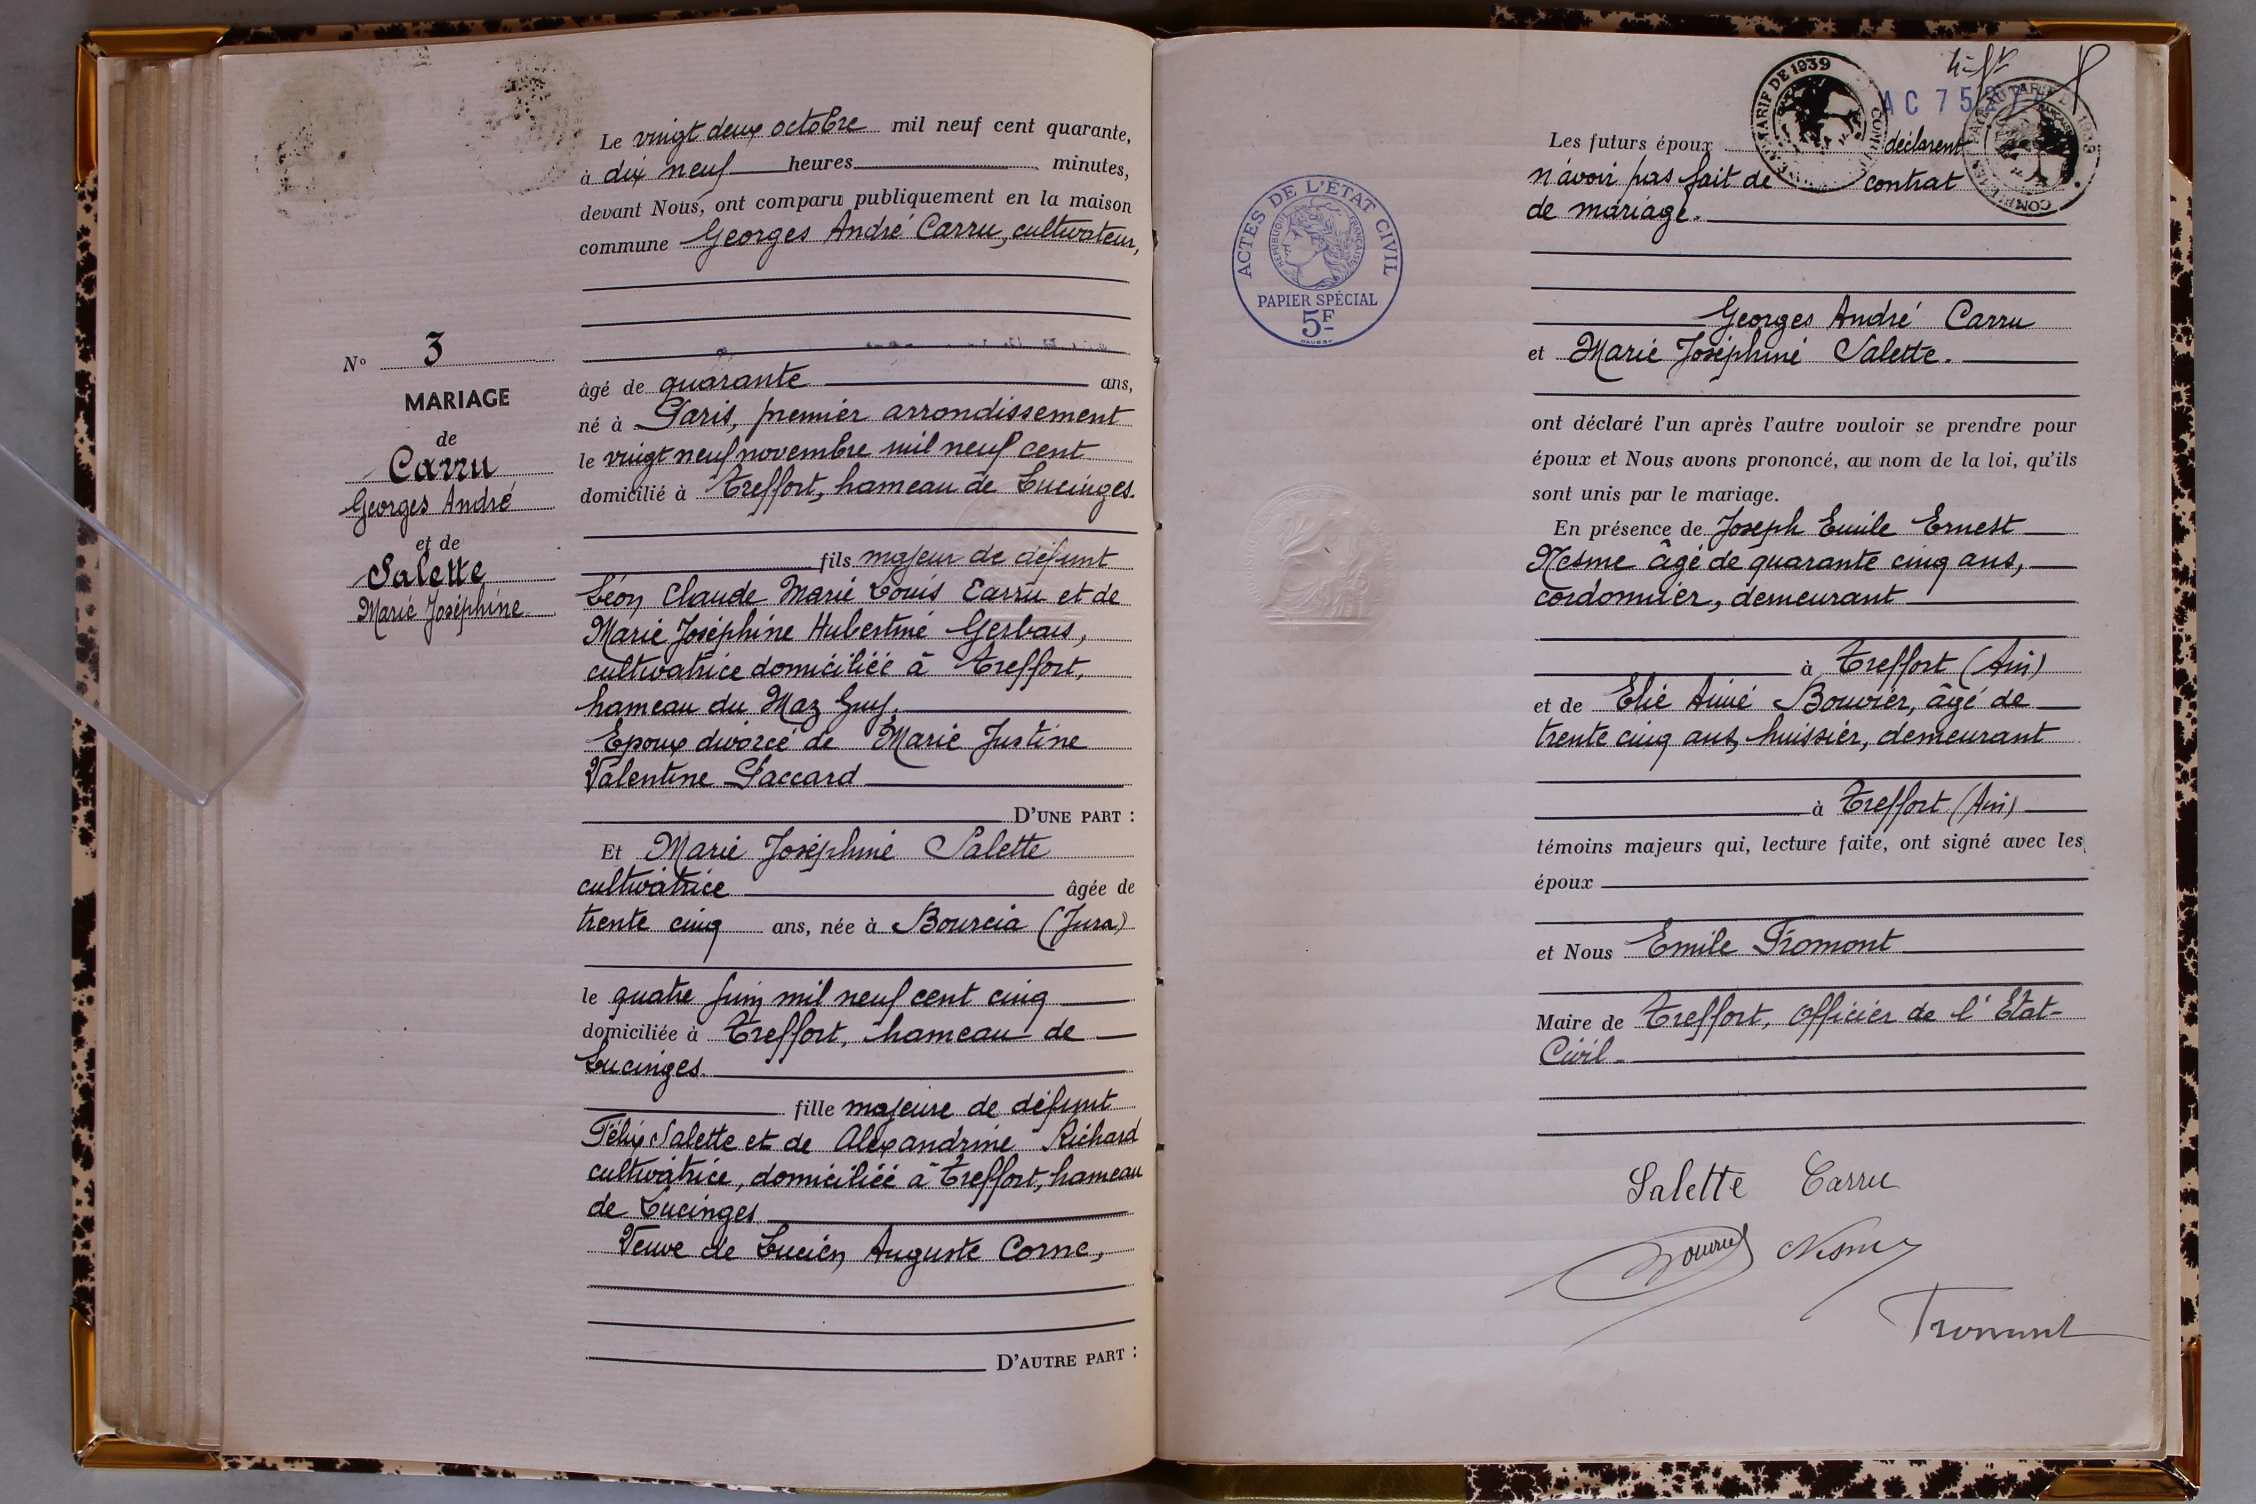 N° 3
MARIAGE
de
Carru
Georges André
et de
Salette
Marie Joséphine
Le vingt deux octobre mil neuf cent quarante,
à dix neuf heures minutes,
devant Nous, ont comparu publiquement en la maison
commune Georges André Carru, cultivateur,
âgé de quarante ans,
né à Paris, premier arrondissement
le vingt neuf novembre mil neuf cent
domicilié à Treffort, hameau de Lucinges.
fils majeur de défunt
Léon Claude Marie Louis Carru et de
Marie Joséphine Hubertine Gerbais,
cultivatrice domiciliée à Treffort,
hameau du Maz Guy.
Epoux divorcé de Marie Justine
Valentine Paccard
D'UNE PART :
Et Marie Joséphine Salette
cultivatrice âgée de
trente cinq ans, née à Bourcia (Jura)
le quatre juin mil neuf cent cinq
domiciliée à Treffort, hameau de
Lucinges.
fille majeure de défunt
Félix Salette et de Alexandrine Richard
cultivatrice, domiciliée à Treffort, hameau
de Lucinges.
Veuve de Lucien Auguste Corne,
D'AUTRE PART :
TARIF DE 1939
AC 75
ACTES DE L'ÉTAT CIVIL
RÉPUBLIQUE FRANÇAISE
PAPIER SPÉCIAL
5F
Les futurs époux déclarent
n'avoir pas fait de contrat
de mariage.
Georges André Carru
et Marie Joséphine Salette.
ont déclaré l'un après l'autre vouloir se prendre pour
époux et Nous avons prononcé, au nom de la loi, qu'ils
sont unis par le mariage.
En présence de Joseph Emile Ernest
Nesme âgé de quarante cinq ans,
cordonnier, demeurant
à Treffort (Ain)
et de Elie Aimé Bouvier, âgé de
trente cinq ans, huissier, demeurant
à Treffort (Ain)
témoins majeurs qui, lecture faite, ont signé avec les
époux
et Nous Emile Fromont
Maire de Treffort, Officier de l'Etat-
Civil.
Salette Carru
Bouvier Nesme
Fromont